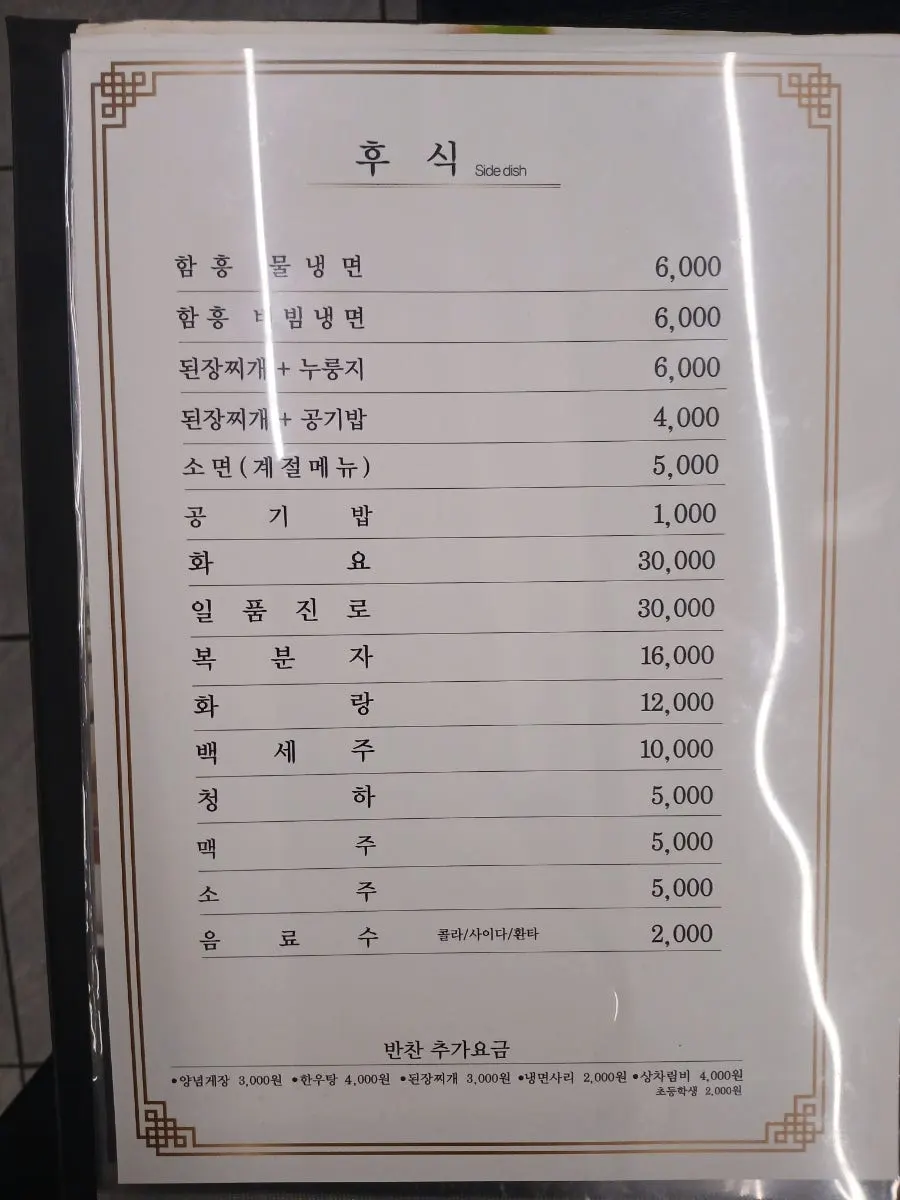 후 식 Side dish
함흥 물냉면 6,000
함흥 비빔냉면 6,000
된장찌개 + 누룽지 6,000
된장찌개 + 공기밥 4,000
소면(계절메뉴) 5,000
공기밥 1,000
화요 30,000
일품진로 30,000
복분자 16,000
화랑 12,000
백세주 10,000
청하 5,000
맥주 5,000
소주 5,000
음료수 콜라/사이다/환타 2,000
반찬 추가요금
•양념게장 3,000원 •한우탕 4,000원 •된장찌개 3,000원 •냉면사리 2,000원 •상차림비 4,000원
초등학생 2,000원